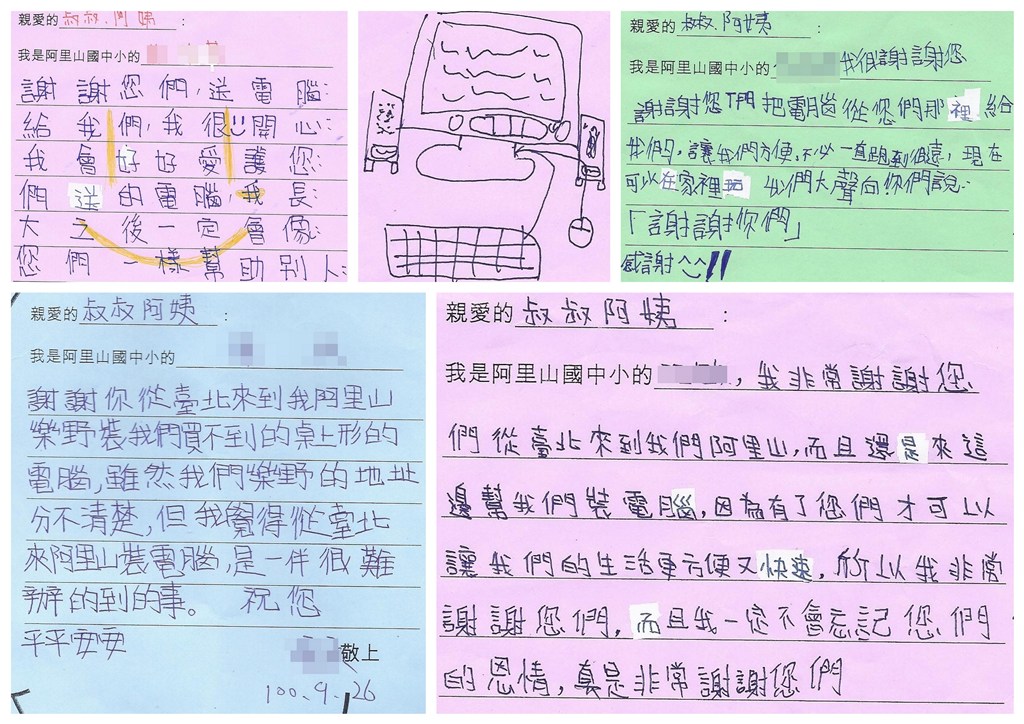 親愛的叔叔.阿姨:
我是阿里山國中小的
謝謝您們,送電腦
給我們,我很開心
我會好好愛護您
們送的電腦,我長
大之後一定會像
您們一樣幫助別人
親愛的叔叔.阿姨:
我是阿里山國中小的 我很謝謝您
謝謝您們把電腦從您們那裡給
我們,讓我們方便.不必一直跑到很遠,現在
可以在家裡 我們大聲向你們說:
「謝謝你們」
感謝^^!!
親愛的叔叔阿姨:
我是阿里山國中小的
謝謝你從臺北來到我阿里山
樂野裝我們買不到的桌上形的
電腦,雖然我們樂野的地址
分不清楚,但我覺得從臺北
來阿里山裝電腦,是一件很難
辦的到的事。 祝您
平平安安
敬上
100.9.26
親愛的叔叔阿姨:
我是阿里山國中小的,我非常謝謝您
們從臺北來到我們阿里山,而且還是來這
邊幫我們裝電腦,因為有了您們才可以
讓我們的生活更方便又快速,所以我非常
謝謝您們,而且我一定不會忘記您們
的恩情,真是非常謝謝您們